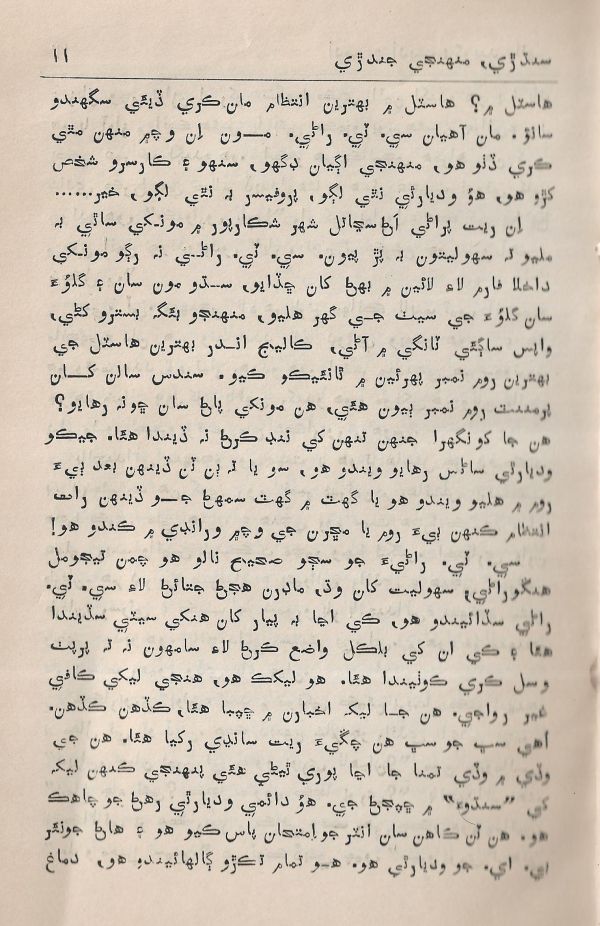 سنڌڙي، منهنجي جندڙي ۱۱
هاسٽل ۾؟ هاسٽل ۾ بهترين انتظام مان ڪري ڏيئي سگهندو
سانؤ. مان آهيان سي. ٽي. راڻي. مون اِن وچ ۾ منهن مٿي
ڪري ڏٺو هو، منهنجي اڳيان ڊگهو، سنهو ۽ ڪارسرو شخص
کڙو هو، هوُ ودياري نٿي لڳو، پروفيسر به نٿي لڳو، خير......
اِن ريت پراڻي اڻ سڃاتل شهر شڪارپور ۾ مونکي ساٿي به
مليو ته سهوليتون به پڙ پيون. سي. ٽي. راڻي نه رڳو مونکي
داخلا فارم لاءِ لائين ۾ بهڻ کان ڇڏايو، سڌو مون سان ۽ گلوُءَ
سان گلوُءَ جي سيٽ جي گهر هليو، منهنجو بئگ بسترو کڻي،
واپس ساڳئي ٽانگي ۾ آڻي، ڪاليج اندر بهترين هاسٽل جي
بهترين روم نمبر پهرئين ۾ ٿانئيڪو ڪيو. سندس سالن کان
پرمننٽ روم نمبر ٻيون هئي، هن مونکي پاڻ سان ڇو نه رهايو؟
هن جا کونگهرا جنهن تنهن کي ننڊ ڪرڻ نه ڏيندا هئا. جيڪو
وديارٿي ساڻس رهايو ويندو هو، سو يا ته ٻن ٽن ڏينهن بعد ٻيءَ
روم ۾ هليو ويندو هو يا گهٽ ۾ گهٽ سمهڻ جو ڏينهن رات
انتظام ڪنهن ٻيءَ روم يا مڇرن جي وچ ۾ ورانڊي ۾ ڪندو هو!
سي. ٽي. راڻيءَ جو سڄو صحيح نالو هو چمن تيجومل
هنڱوراڻي، سهوليت کان وڌ، ماڊرن هجڻ جتائڻ لاءِ سي. ٽي.
راڻي سڏائيندو هو، ڪي اڃا به پيار کان هنکي سيٽي سڏيندا
هئا ۽ ڪي ان کي بلڪل واضع ڪرڻ لاءِ سامهون نه ته پرپٺ
وسل ڪري ڪوٺيندا هئا. هو ليکڪ هو، هنجي ليکي ڪافي
غير رواجي. هن جا ليک اخبارن ۾ ڇپيا هئا، ڪڏهن ڪڏهن.
اُهي سڀ جو سڀ هن چڱيءَ ريت سانڍي رکيا هئا. هن جي
وڏي ۾ وڏي تمنا جا اڃا پوري ٿيڻي هئي پنهنجي ڪنهن ليک
کي ”سنڌوءَ“ ۾ ڇپجڻ جي. هوُ دائمي وديارٿي رهڻ جو چاهڪ
هو. هن ٽن ڪاهن سان انٽر جو اِمتحان پاس ڪيو هو ۽ هاڻ جونئر
بي. اي. جو وديارٿي هو. هو تمام تڪڙو ڳالهائيندو هو، دماغ